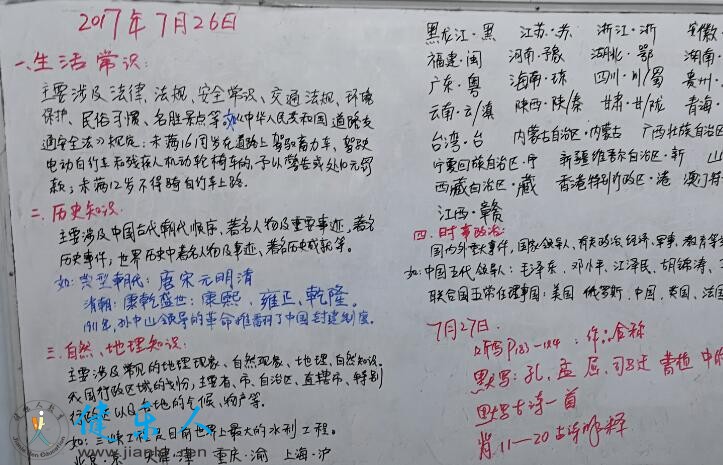 2017年7月26日
一.生活常识:
主要涉及法律、法规、安全常识、交通法规、环境
保护、民俗习惯、名胜景点等.如《中华人民共和国道路交
通安全法》规定:未满16周岁在道路上驾驭畜力车,驾驶
电动自行车和残疾人机动轮椅车的,予以警告或处10元罚
款;未满12岁不得骑自行车上路.
二.历史知识.
主要涉及中国古代朝代顺序,著名人物及重要事迹,著名
历史事件,世界历史中著名人物及事迹、著名历史成就等.
如:典型朝代:唐宋元明清
清朝:康乾盛世:康熙、雍正、乾隆.
1911年,孙中山领导的革命推翻了中国封建制度.
三.自然、地理知识:
主要涉及常见的地理现象、自然现象、地理、自然知识.
我国行政区域的划份,主要省、市、自治区、直辖市、特别
行政区以及各地的气候、物产等.
如:三峡工程是目前世界上最大的水利工程.
北京·京 天津·津 重庆·渝 上海·沪
黑龙江·黑 江苏·苏 浙江·浙 安徽·
福建·闽 河南·豫 湖北·鄂 湖南·
广东·粤 海南·琼 四川·川/蜀 贵州·
云南·云/滇 陕西·陕/秦 甘肃·甘/陇 青海·
台湾·台 内蒙古自治区·内蒙古 广西壮族自治区
宁夏回族自治区·宁 新疆维吾尔自治区·新 山
西藏自治区·藏 香港特别行政区·港 澳门特
江西·赣
四.时事政治:
国内外重大事件,国家领导人,有关政治、经济、军事、教育等
如:中国五代领导人:毛泽东、邓小平、江泽民、胡锦涛、
联合国五常任理事国:美国、俄罗斯、中国、英国、法国
7月27日.
听写P183-184.:作品合称
默写:孔、孟、屈、司马迁 曹植 中的
默写古诗一首
背11-20古诗解释
健乐人
www.jianle